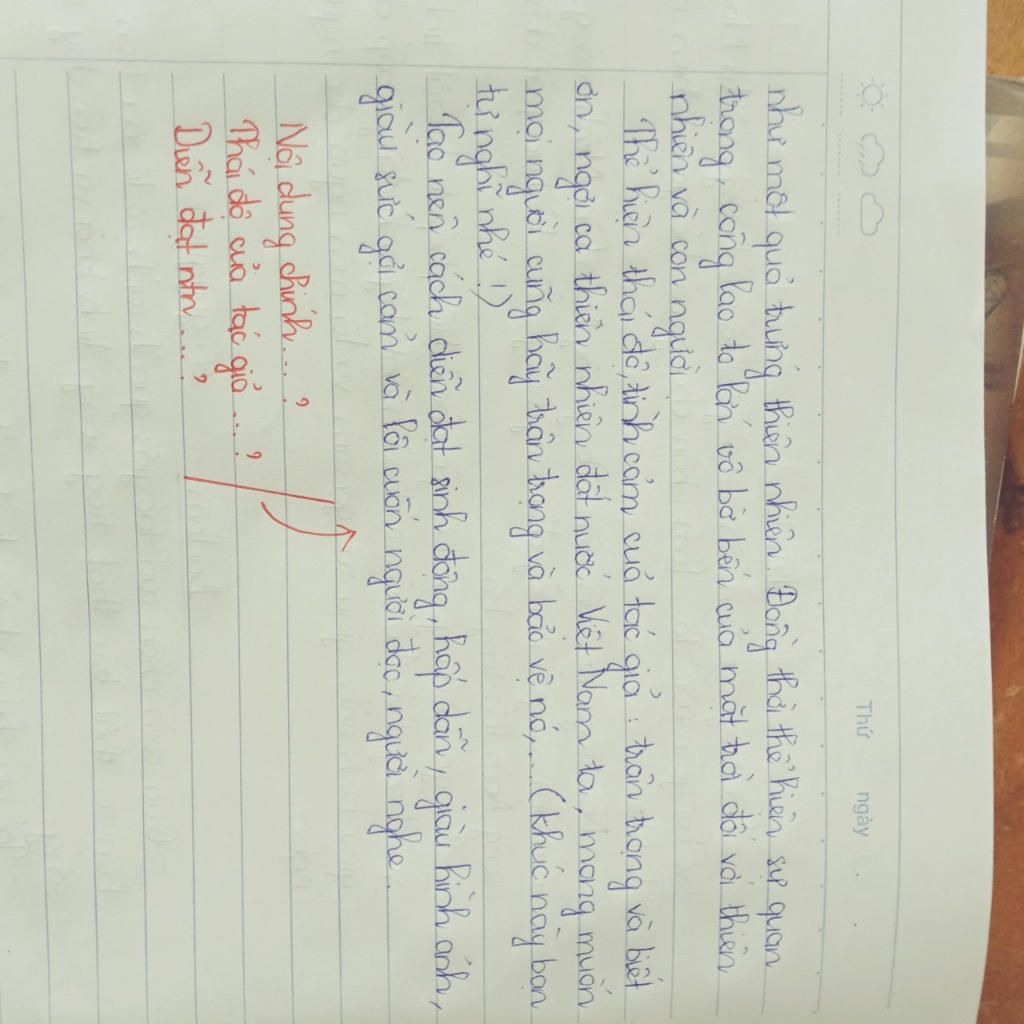 Thứ ngày
như một quả trứng thiên nhiên. Đồng thời thể hiện sự quan
trọng, công lao to lớn vô bờ bến của mặt trời đối với thiên
nhiên và con người
Thể hiện thái độ, tình cảm của tác giả : trân trọng và biết
ơn, ngợi ca thiên nhiên đất nước Việt Nam ta, mong muốn
mọi người cũng hãy trân trọng và bảo vệ nó,... (khúc này bạn
tự nghĩ nhé !)
Tạo nên cách diễn đạt sinh động, hấp dẫn, giàu hình ảnh,
giàu sức gợi cảm và lôi cuốn người đọc, người nghe.
Nội dung chính....?
Thái độ của tác giả....?
Diễn đạt ntn....?